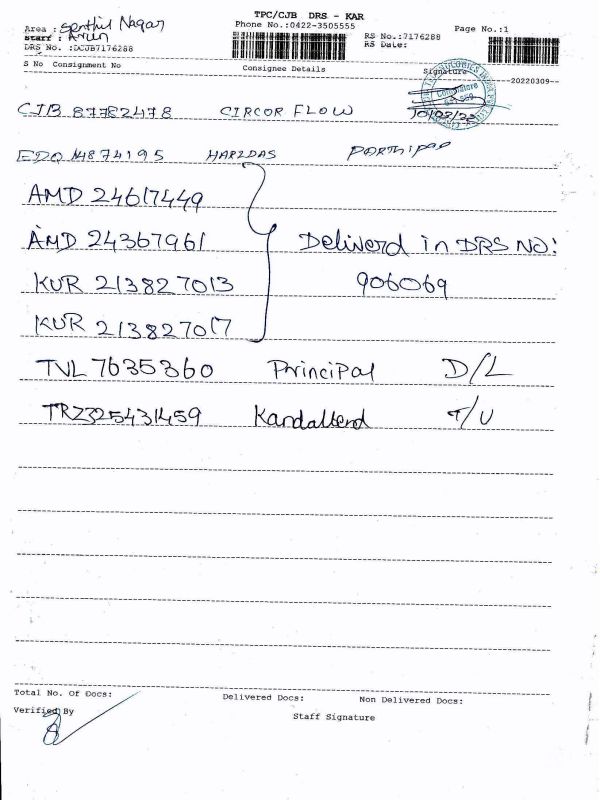 TPC/CJB DRS - KAR
Area : Senthil Nagar Phone No.:0422-3505555 Page No.:1
Staff : Arun RS No.:7176288
DRS No. :DCJB7176288 RS Date:
S No Consignment No Consignee Details Signature
20220309--
CJB 87782478 CIRCOR FLOW 10/03/22
EDQ 14874195 HARIDAS
AMD 24617449
AMD 24367961 Deliverd in DRS NO:
KUR 213827013 906069
KUR 213827017
TVL 7635360 Principal D/L
TRZ325431459 T/U
Total No. Of Docs: Delivered Docs: Non Delivered Docs:
Verified By
Staff Signature